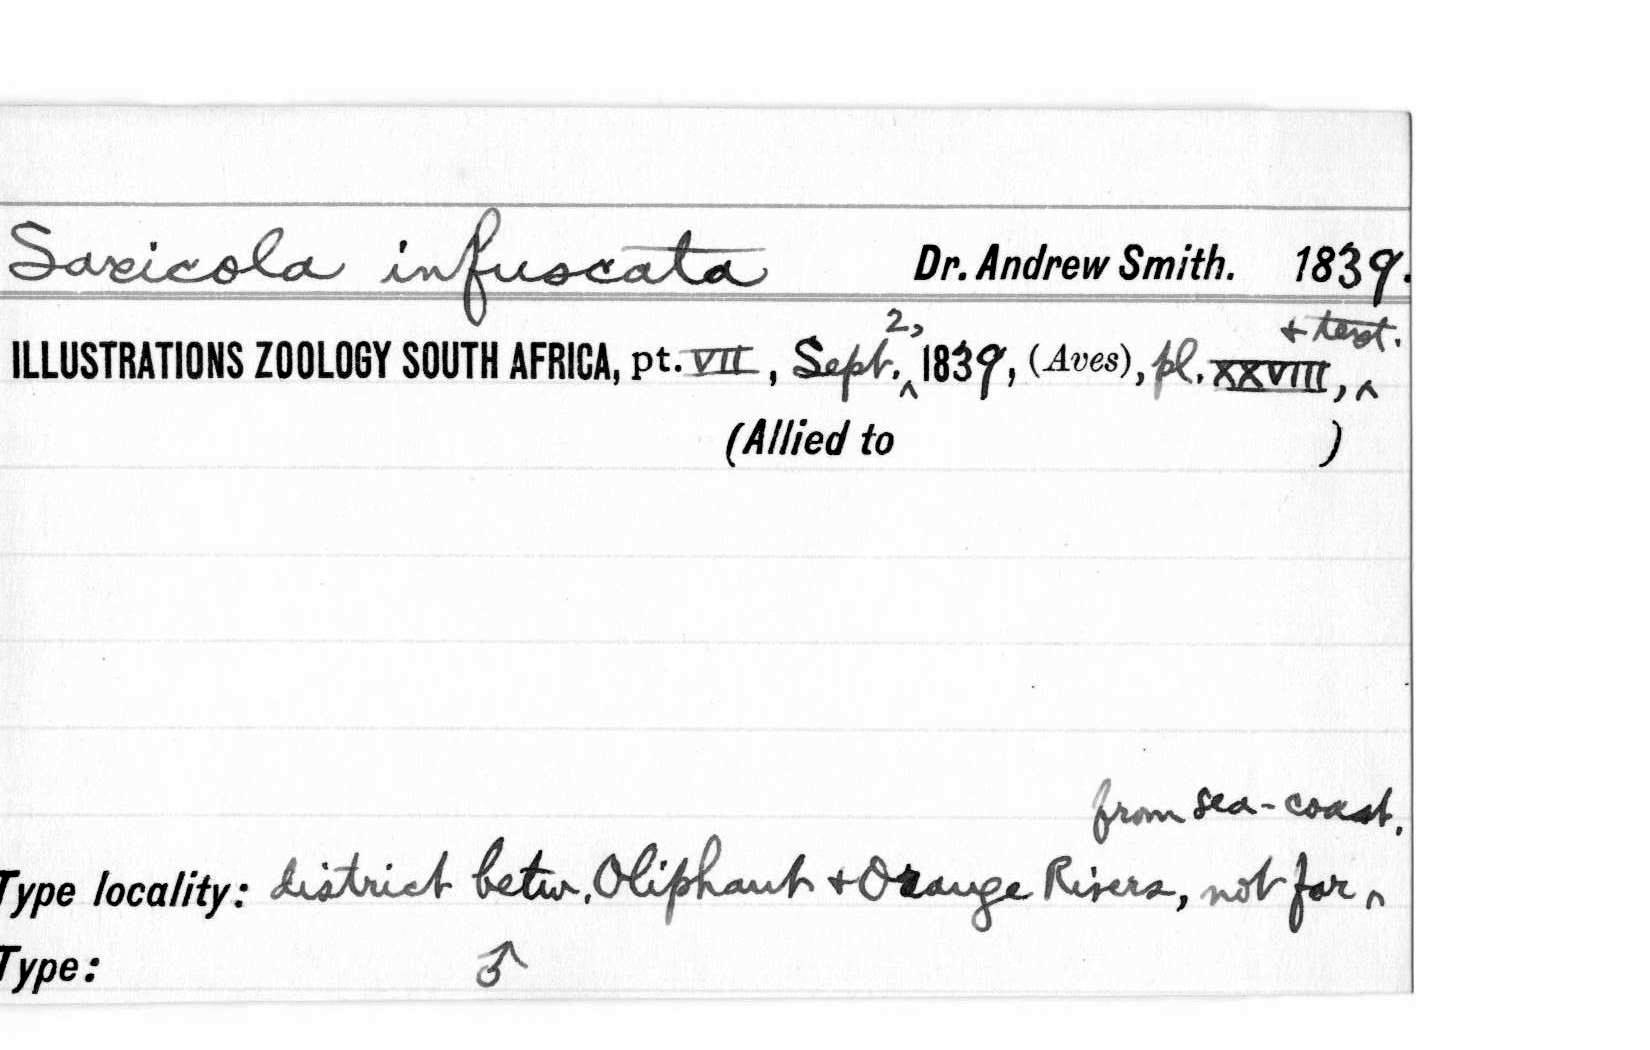 Saxicola infuscata Dr. Andrew Smith. 1839.
ILLUSTRATIONS ZOOLOGY SOUTH AFRICA, pt. VII, Sept. 2, 1839, (Aves), pl. XXVIII, + text.
(Allied to )
Type locality: district betw. Oliphant + Orange Rivers, not far from sea-coast.
Type: ♂